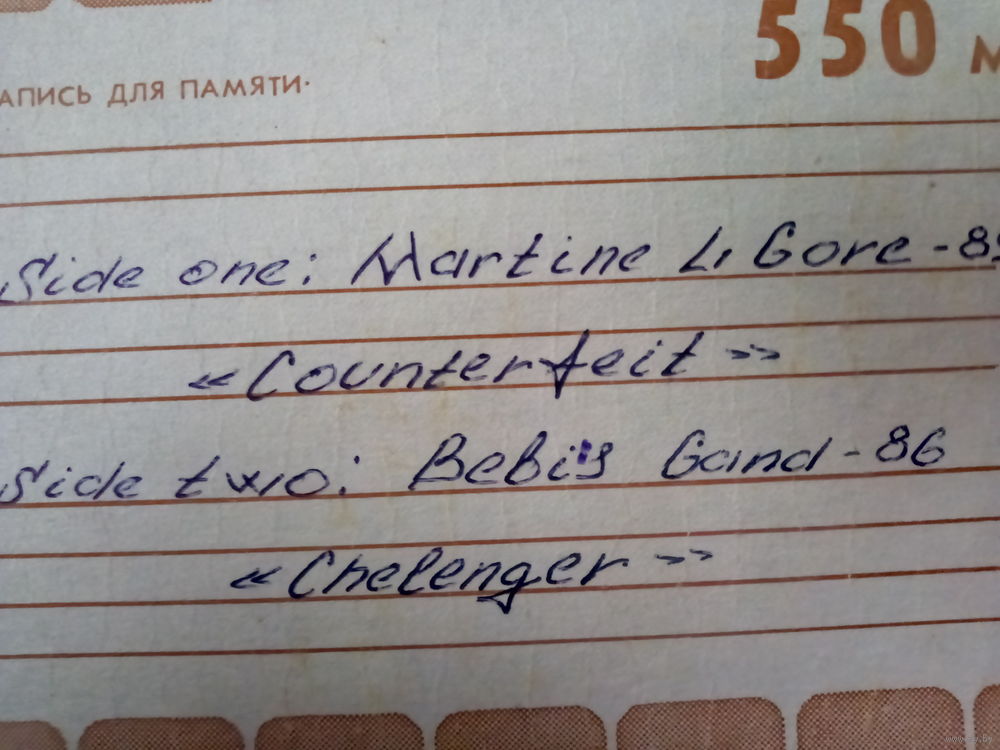 550 м
АПИСЬ ДЛЯ ПАМЯТИ·
Side one: Martine L, Gore - 89
«Counterfeit»
Side two: Bebi's Gand - 86
«Chelenger»